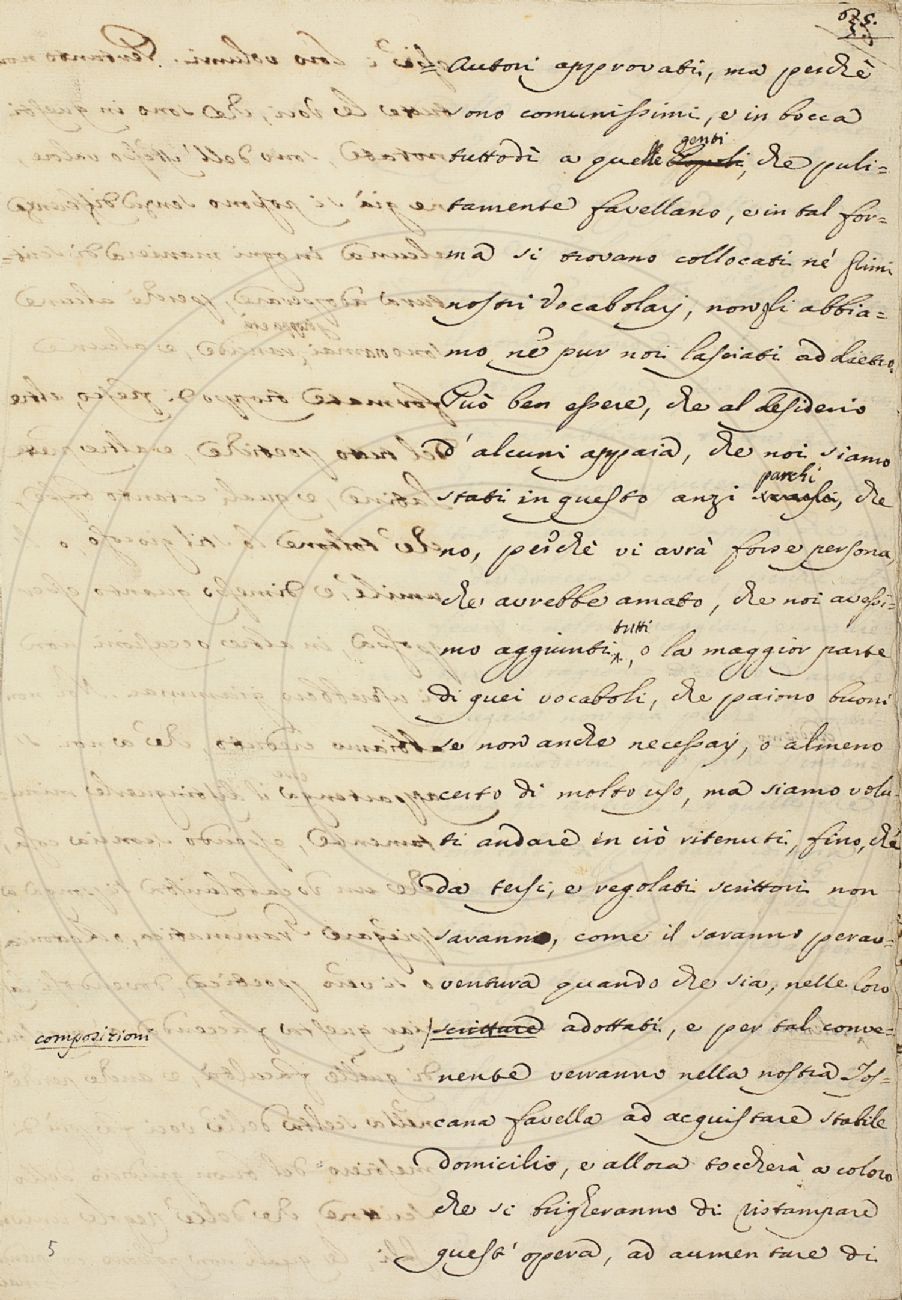 675.
5.
Autori approvati, ma perchè
sono comunissimi, e in bocca
genti
tuttodì a quelle popoli, che puli=
tamente favellano, e in tal for=
ma si trovano collocati né
nostri Vocabolarj, non gli abbia=
mo né pur noi lasciati addietro.
Può ben essere, che al desiderio
d'alcuni appaia, che noi siamo
parchi
stati in questo anzi scarsi, che
no, perchè vi avrà forse persona,
che avrebbe amato, che noi avessi=
tutti
mo aggiunti, o la maggior parte
di quei vocaboli, che paiono buoni
se non anche necessarj, o almeno
certo di molto uso, ma siamo volu=
ti andare in ciò ritenuti, fino, che
da tersi, e regolati scrittori non
saranno, come il saranno perav=
ventura quando che sia, nelle loro
composizioni
scritture adottati, e per tal conve=
nente verranno nella nostra Tos=
cana favella ad acquistare stabile
domicilio, e allora toccherà a coloro
che si brigheranno di ristampare
quest'opera, ad aumentare di
5